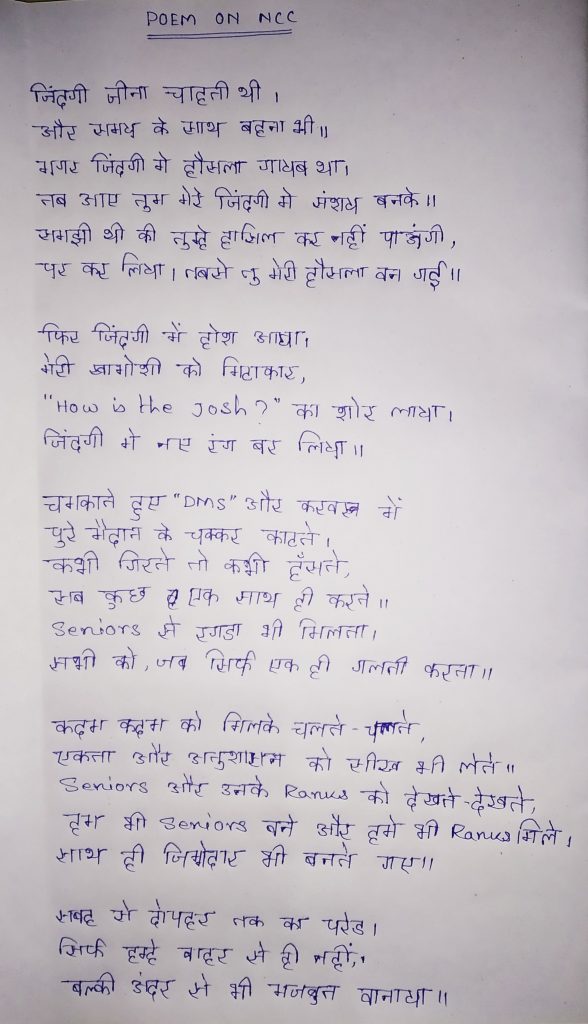 POEM ON NCC
जिंदगी जीना चाहती थी।
और समय के साथ बहना भी॥
मगर जिंदगी मे हौसला गायब था।
तब आए तुम मेरे जिंदगी मे संशय बनके॥
समझी थी की तुम्हे हासिल कर नहीं पाऊंगी,
पर कर लिया। तबसे तु मेरी हौसला बन गई॥
फिर जिंदगी में होश आया।
मेरी खामोशी को मिटाकार,
"How is the Josh?" का शोर लाया।
जिंदगी मे नए रंग बर लिया॥
चमकाते हुए "DMS" और में
पुरे मैदान के चक्कर काटते।
कभी गिरते तो कभी हँसते,
सब कुछ एक साथ ही करते॥
Seniors से रगडा भी मिलता।
सभी को, जब सिर्फ एक ही गलती करता॥
कदम कदम को मिलके चलते-चलते,
एकता और अनुशासन को सीख भी लेते॥
Seniors और उनके Ranks को देखते-देखते,
हम भी Seniors बने और हमे भी Ranks मिले।
साथ ही जिमेदार भी बनते गए॥
सबह से दोपहर तक का परेड।
सिर्फ हम्हे बाहर से ही नहीं,
बल्की अंदर से भी मजबुत बानाया॥